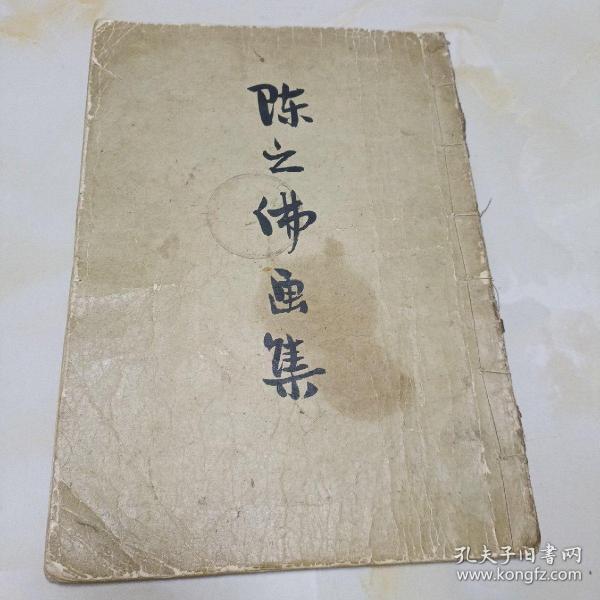 陈之佛画集
孔夫子旧書网
www.kongfz.com